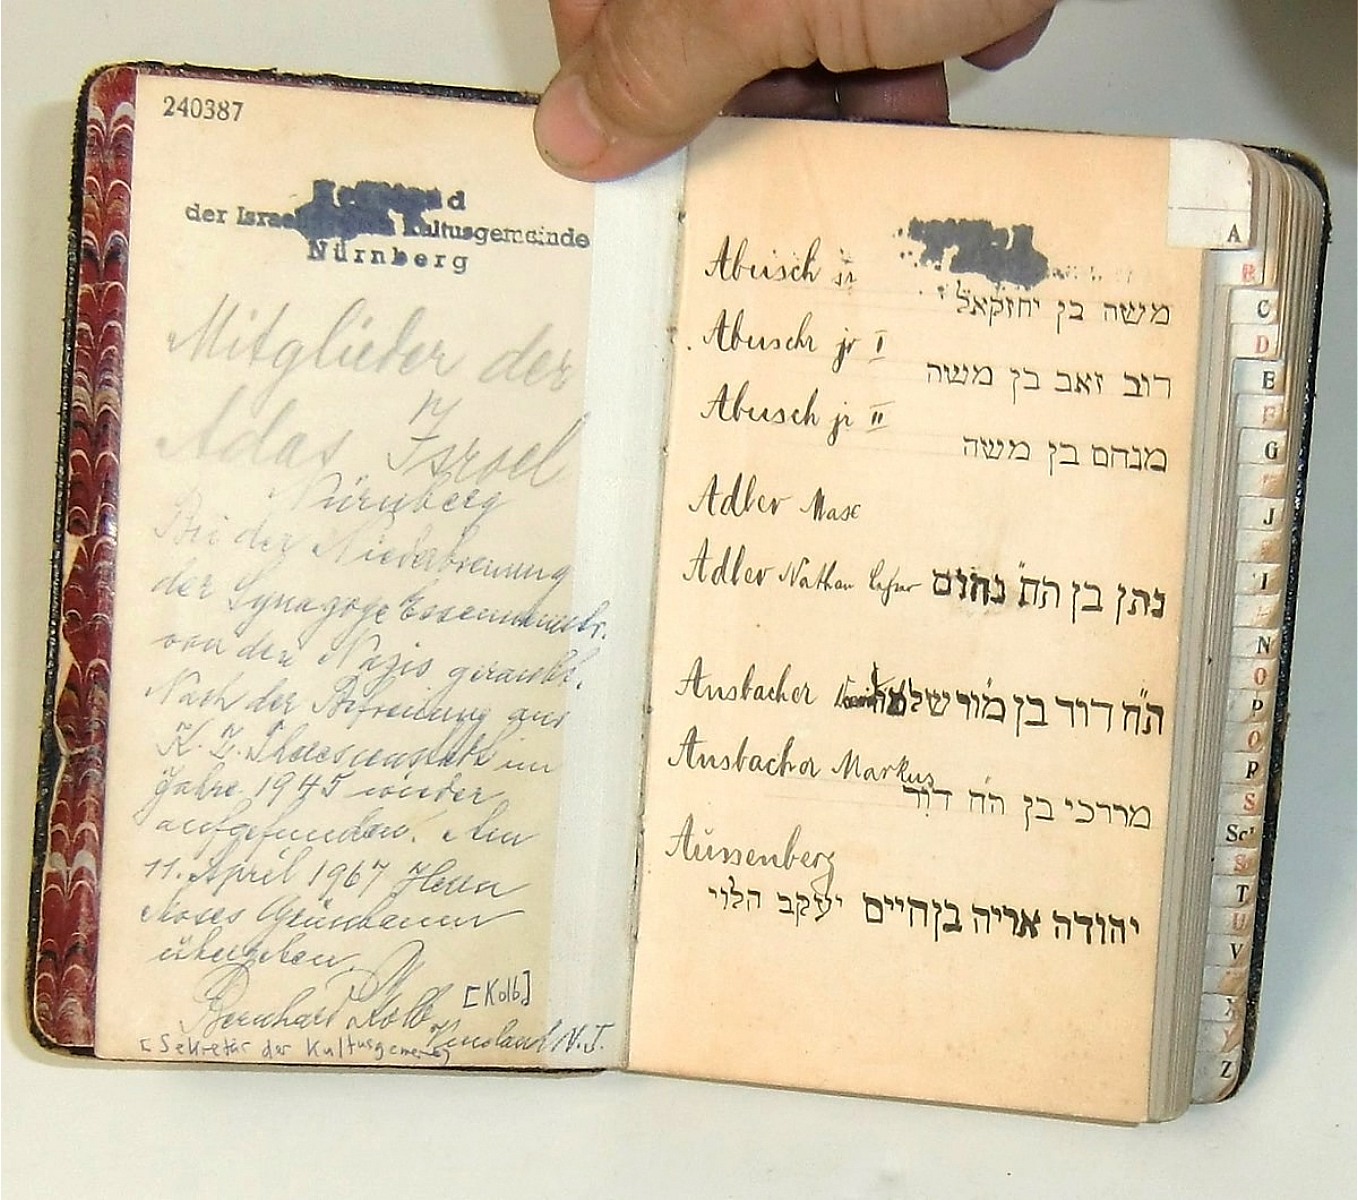 240387
d
der Israe Kultusgemeinde
Nürnberg
Mitglieder der
Adas Isroel
Nürnberg
Bei der Niederbrennung
der Synagoge Essenweinstr.
von den Nazis geraubt.
Nach der Befreiung aus
K. Z. Theresienstadt im
Jahre 1945 wieder
aufgefunden. Am
11. April 1967 Herrn
Moses Grünbaum
übergeben.
Bernhard Kolb [Kolb]
Vineland N.J.
[Sekretär der Kultusgemeinde]
Abusch sr
משה בן יחזקאל
Abusch jr I
דוב זאב בן משה
Abusch jr II
מנחם בן משה
Adler Max
Adler Nathan נתן בן הח' נחום
Ansbacher הח' דוד בן מור שלמה
Ansbacher Markus
מרדכי בן הח' דוד
Aussenberg
יהודה אריה בן חיים יעקב הלוי
A
B
C
D
E
F
G
J
N
O
P
Q
R
S
Sch
T
U
V
X
Y
Z